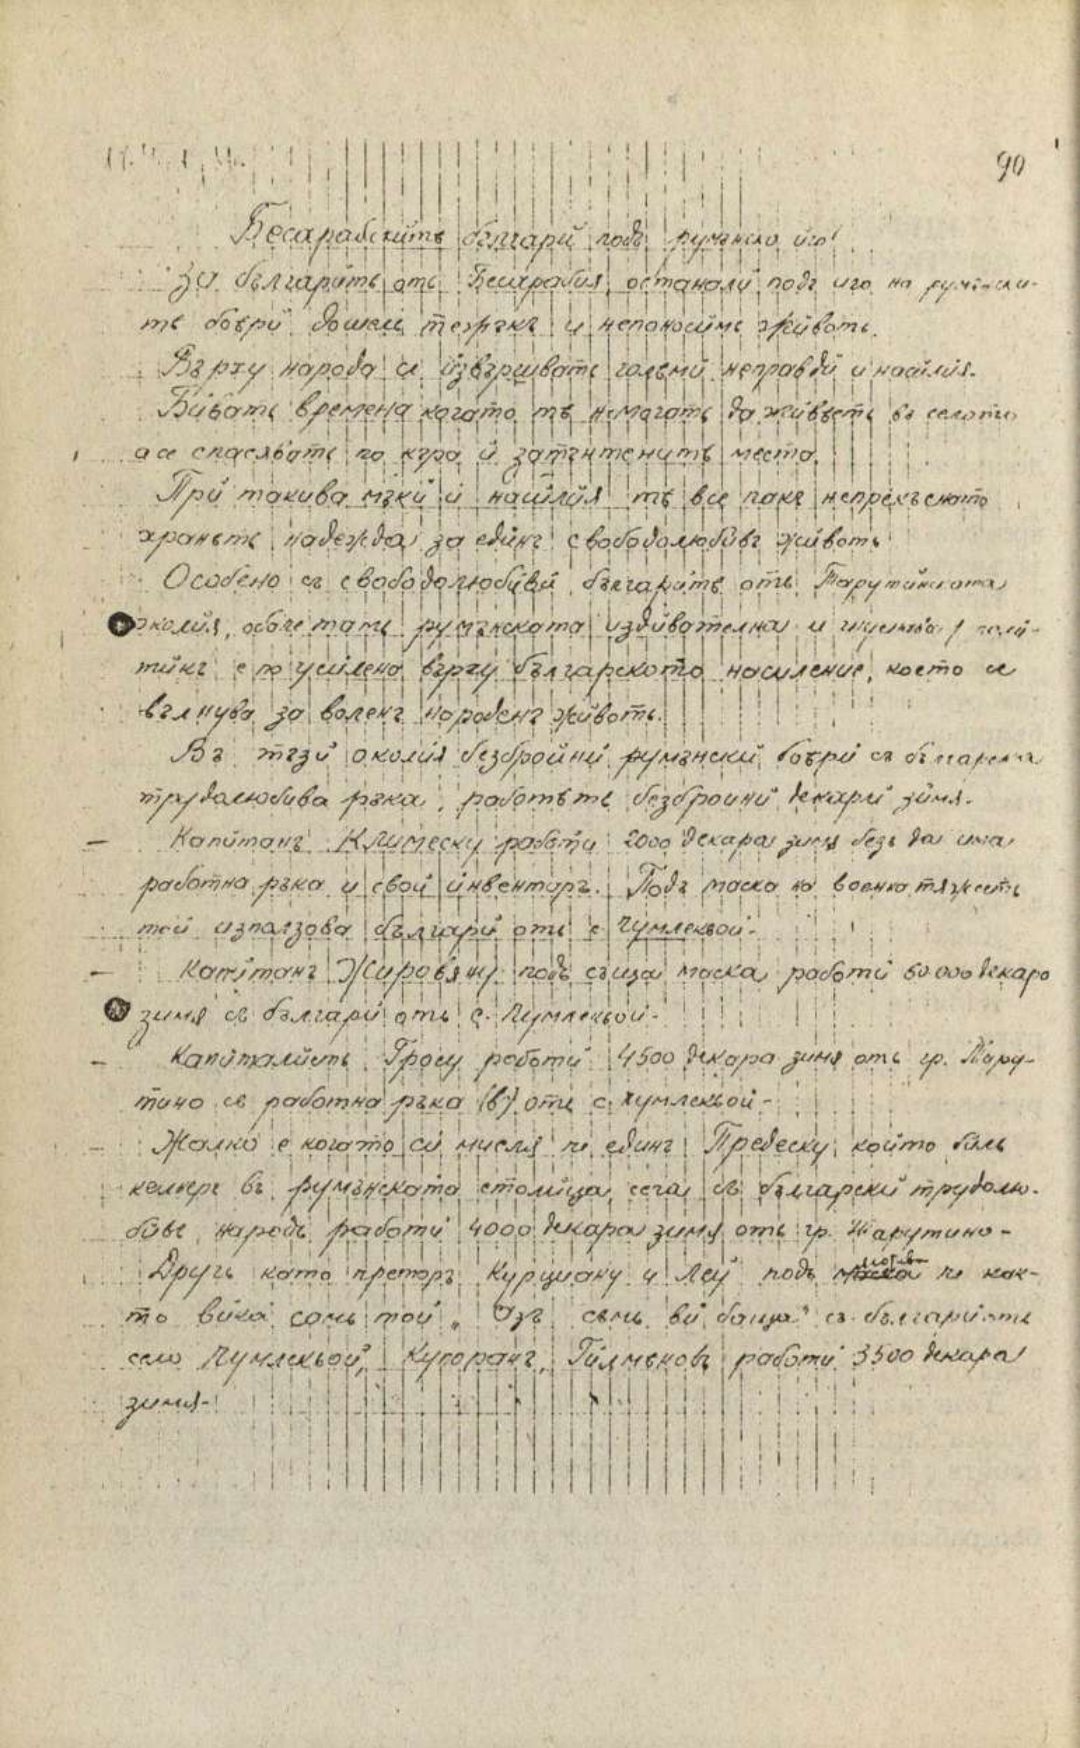 90
Бесарабскитѣ българи подъ румънско иго!
За българитѣ отъ Бесарабия, останали подъ иго на румънски-
тѣ боѣри дошелъ тежъкъ и непоносимъ животъ.
Върху народа се извършватъ голѣми неправди и насилия.
Биватъ времена когато тѣ немогатъ да живѣятъ въ селото
а се спасяватъ по кѫра и затънтенитѣ места.
При такива мѫки и насилия тѣ все пакъ непрекѫснато
хранятъ надежда за единъ свободолюбивъ животъ
Особено съ свободолюбиви българитѣ отъ Тарутинската
околия, обаче тамъ румънската издивателна и поли-
тика е по усилена върху българското население, което се
вълнува за воленъ народенъ животъ.
Въ тѣзи околия безбройни румънски боѣри съ българска
трудолюбива рѫка, работятъ безбройни декари зимя.
– Капитанъ Климеску работи 2000 декара зимя безъ да има
работна рѫка и свой инвентаръ. Подъ маска на военна тяжесть
той използова българи отъ с. Чумлекьой.
– Капитанъ Жировяну подъ същата маска работи 60 000 декара
зимя съ българи отъ с. Чумлекьой.
– Капиталистъ Гросу работи 4500 декара зимя отъ гр. Тару-
тино съ работна рѫка (в) отъ с. Чумлекьой-
– Жалко е когато си мисля че единъ Предеску, който билъ
келнеръ въ румънската столица, сега съ български трудолю-
бивъ народъ работи 4000 декара зимя отъ гр. Тарутино-
Другъ като преторъ Курциану и Леу подъ маска че как-
то вика самъ той „Азъ съмъ ви баща" съ българи отъ
село Чумлекьой, Купоранъ, работи 3500 декара
зимя-